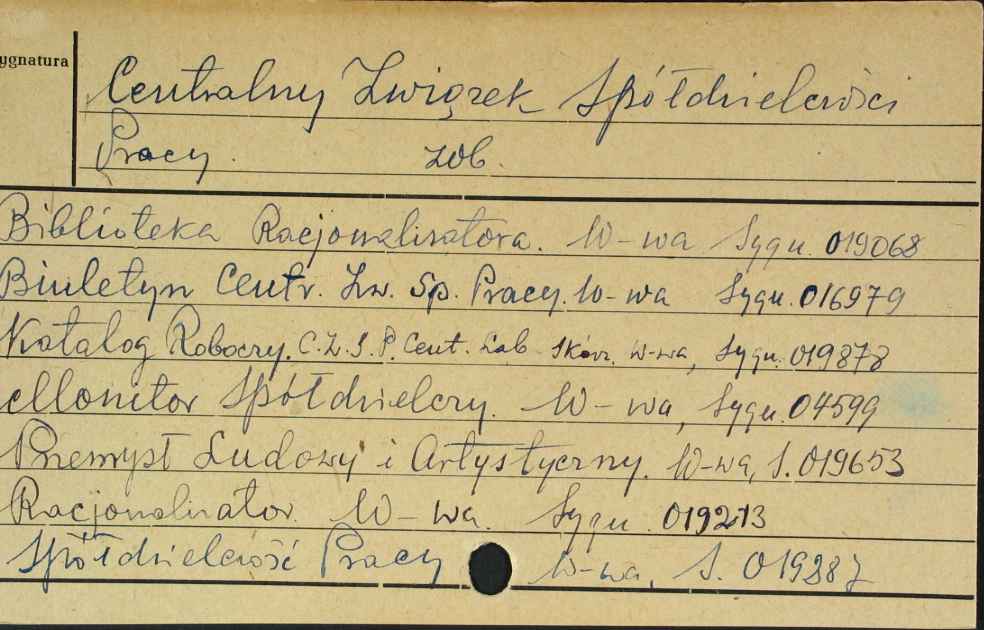 ygnatura
Centralny Związek Spółdzielczości
Pracy. zob.
Biblioteka Racjonalizatora. W-wa Sygn. 019068
Biuletyn Centr. Zw. Sp. Pracy. W-wa Sygn. 016979
Katalog Roboczy. C.Z.S.P. Cent. Lab. Skórz. W-wa, Sygn. 019878
Monitor Spółdzielczy. W-wa, Sygn. 04599
Przemysł Ludowy i Artystyczny. W-wa, S. 019653
Racjonalizator. W-wa. Sygn. 019213
Spółdzielczość Pracy W-wa, S.